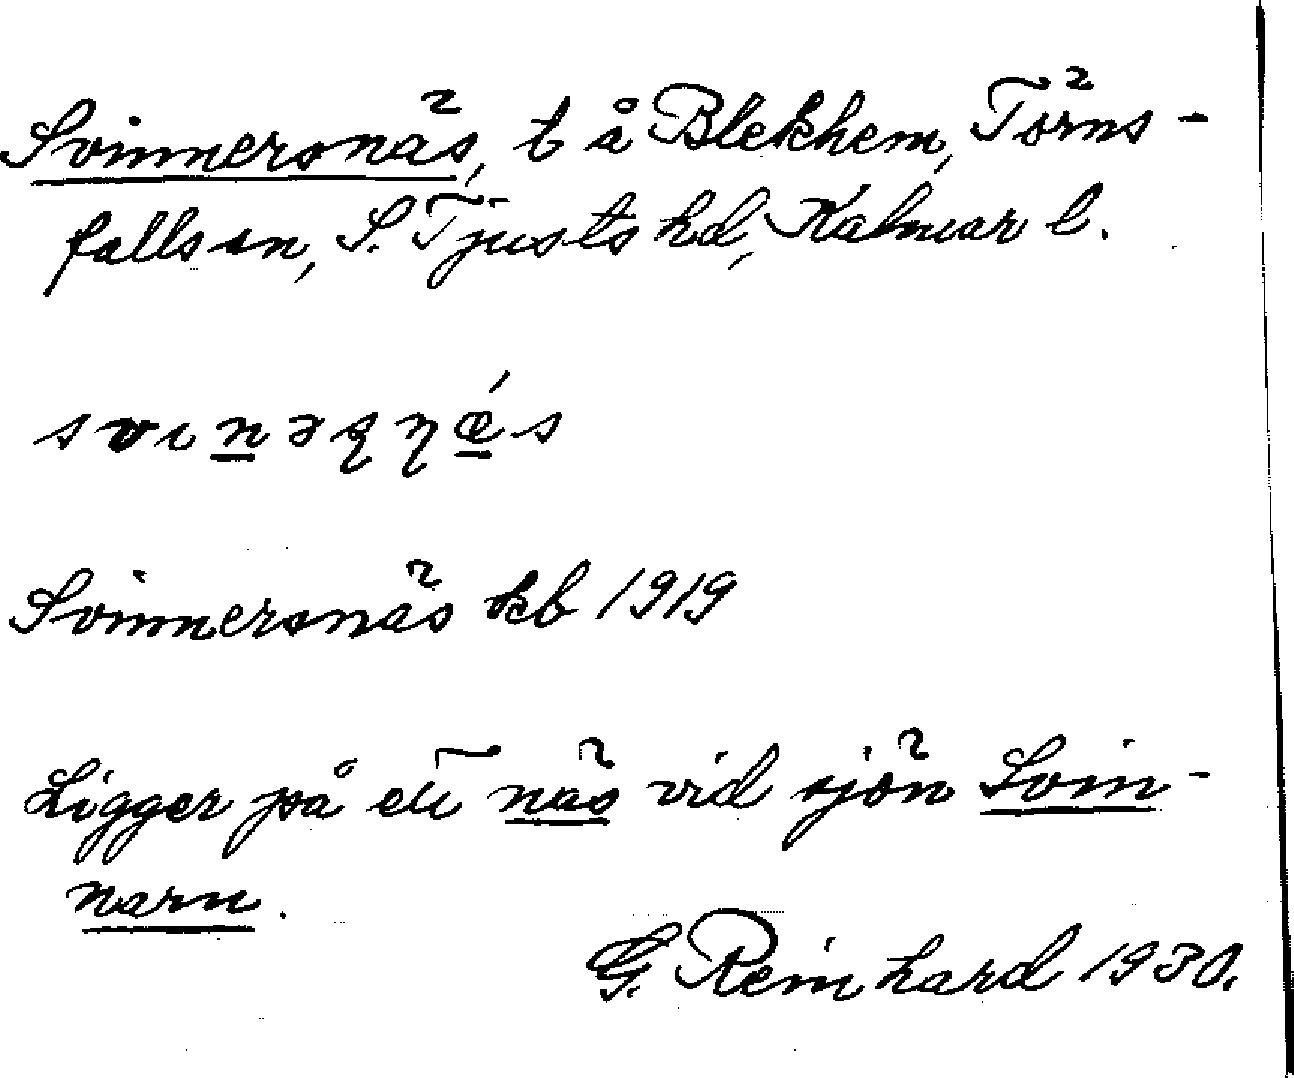 Svinnersnäs, t å Blekhem, Törns-
falls sn, S. Tjusts hd, Kalmar l.
svɩnəʂɳǽs
Svinnersnäs kb 1919
Ligger på ett näs vid sjön Svin-
narn.
G. Reinhard 1930.